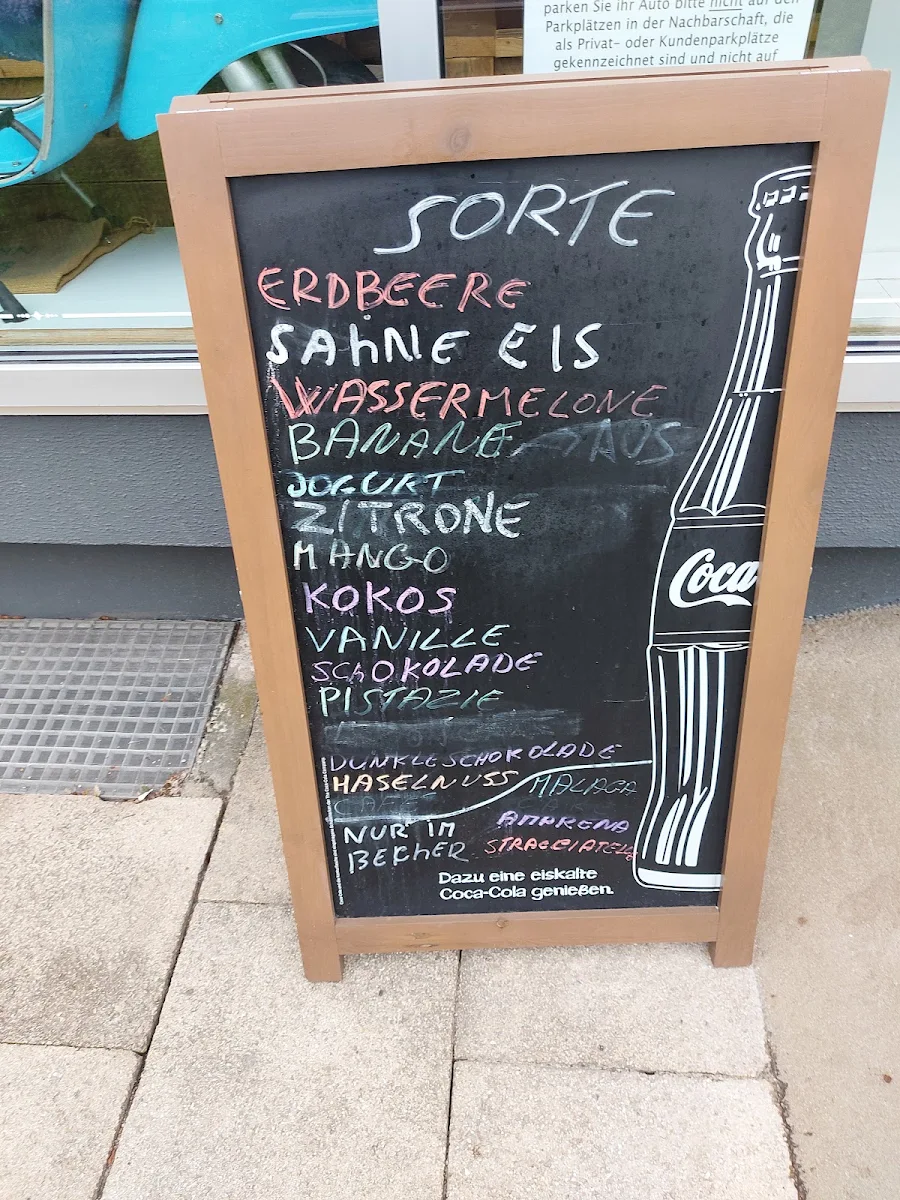 parken Sie ihr Auto bitte nicht auf den
Parkplätzen in der Nachbarschaft, die
als Privat- oder Kundenparkplätze
gekennzeichnet sind und nicht auf
SORTE
ERDBEERE
SAhNE EIS
WASSERMELONE
BANANE AUS
JOGURT
ZITRONE
MANGO
KOKOS
VANILLE
SChOKOLADE
PISTAZIE
DUNKLE SCHOKOLADE
HASELNUSS MALAGA
CAFE
AMARENA
NUR IM
BECHER STRACCIATELL
Dazu eine eiskalte
Coca-Cola genießen.
Coca